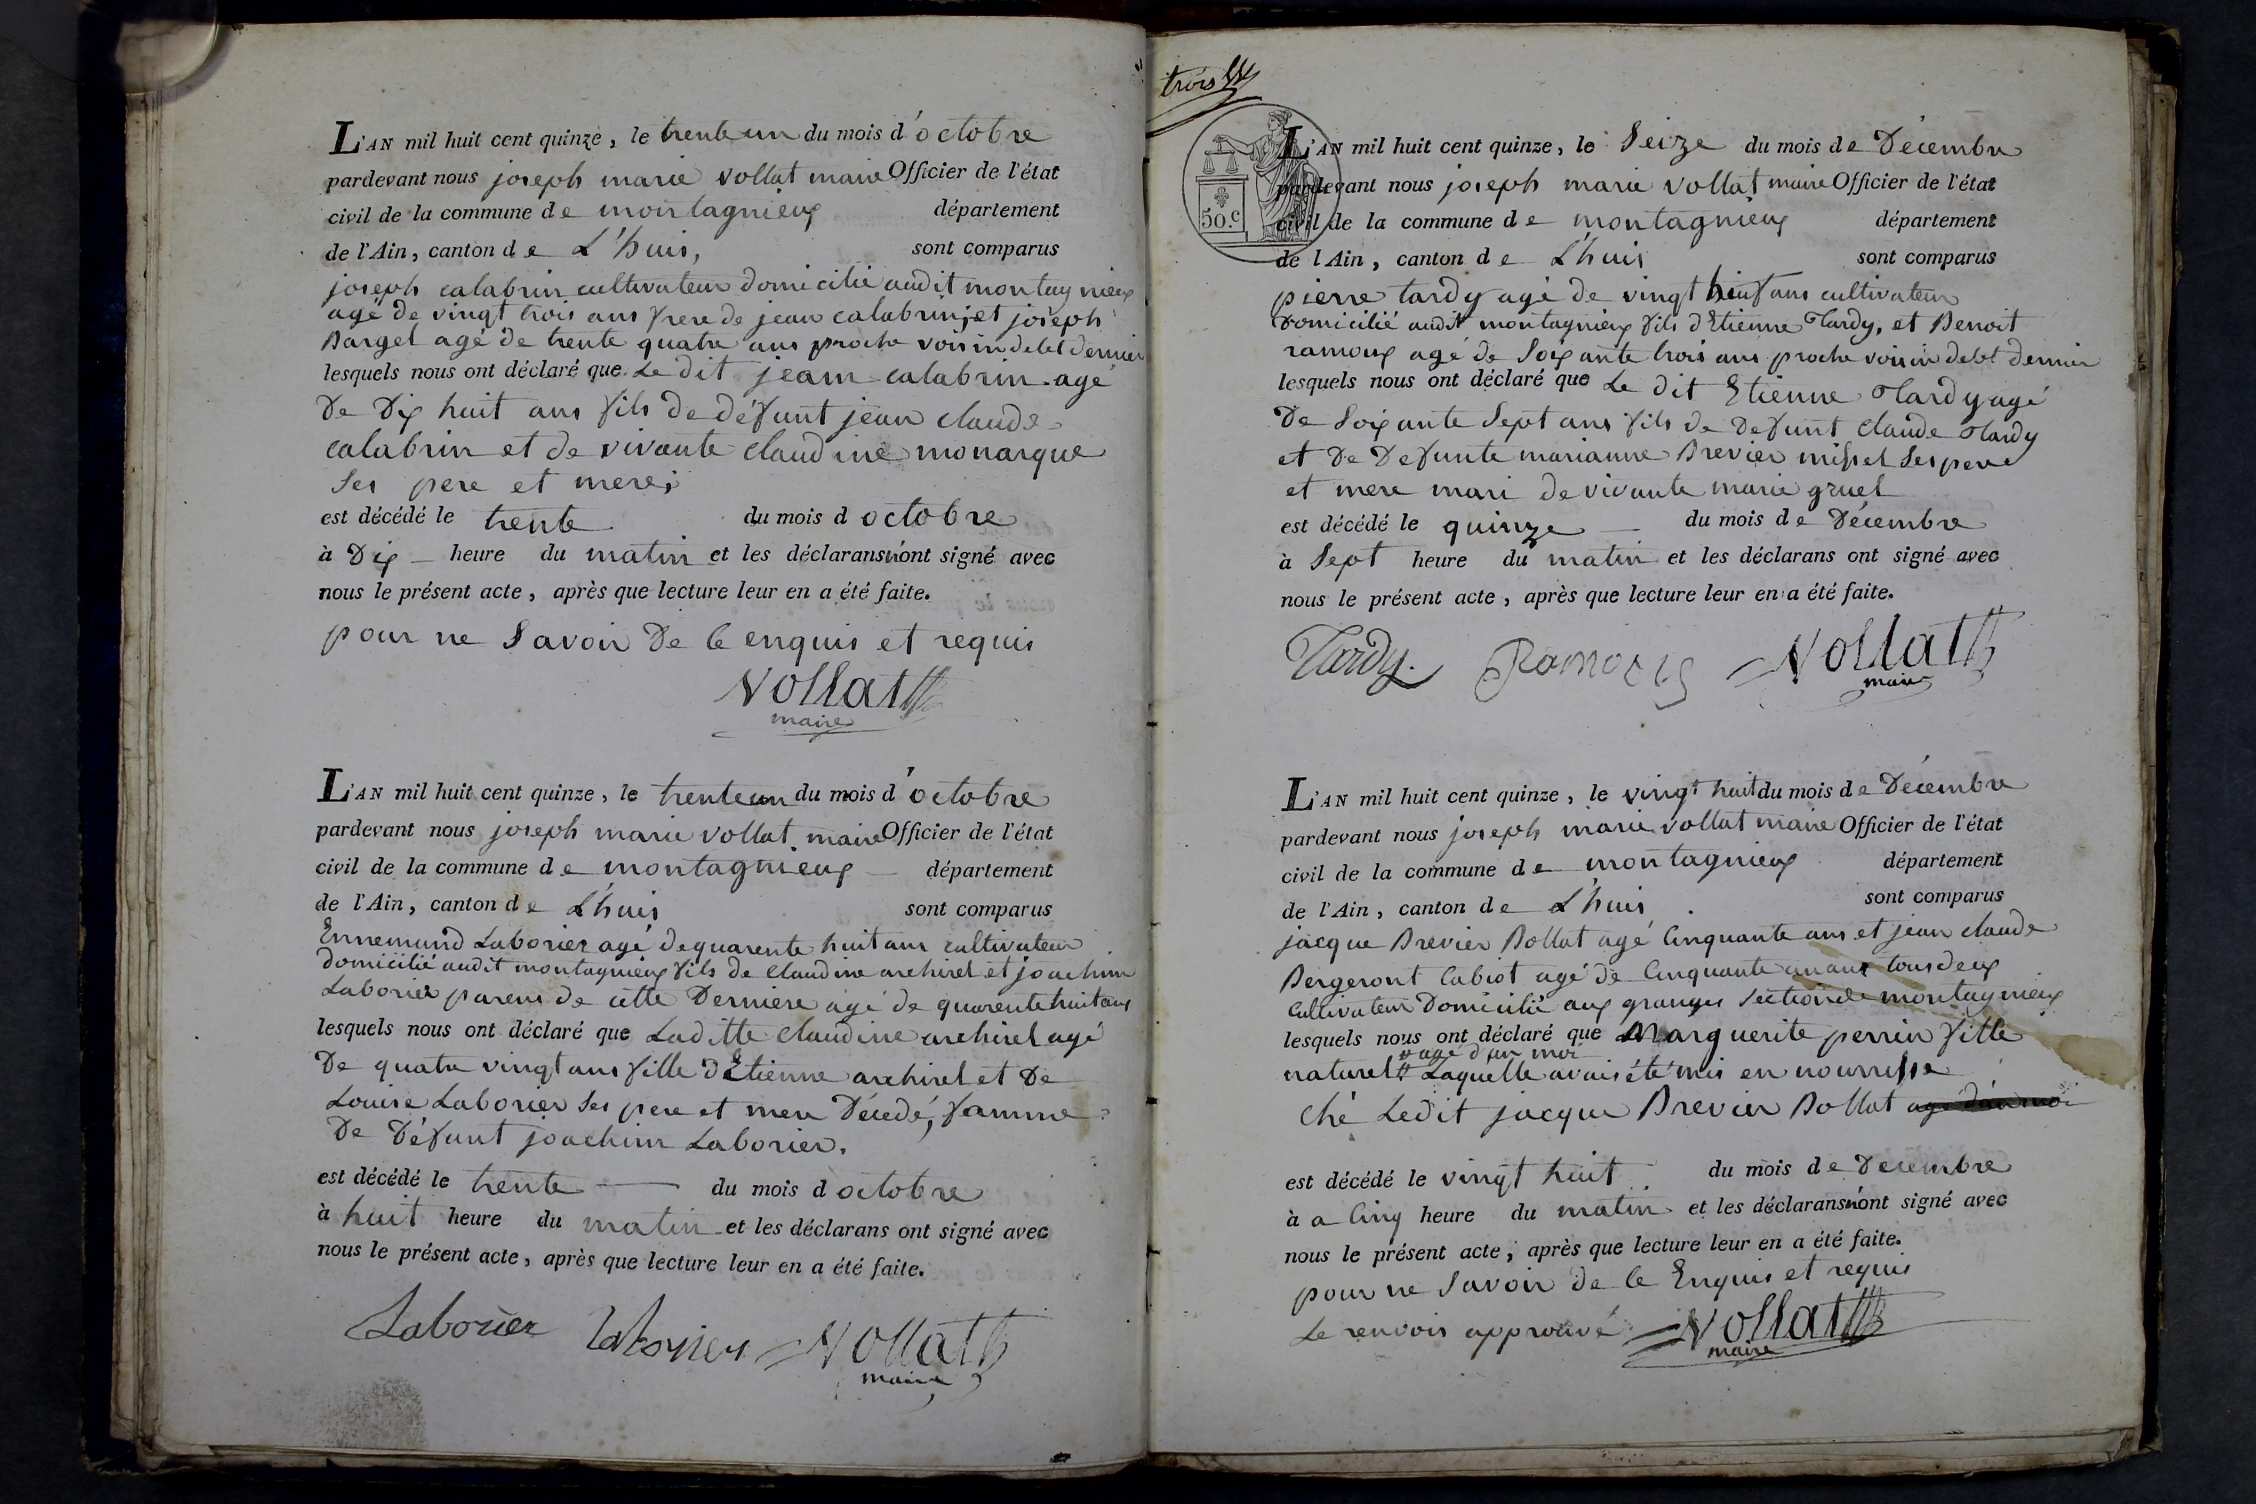 L'AN mil huit cent quinze, le trente un du mois d'octobre
pardevant nous joseph marie vollat maire Officier de l'état
civil de la commune de montagnieux département
de l'Ain, canton de L'huis, sont comparus
joseph calabrin cultivateur domicilié audit montagnieux
agé de vingt trois ans frere de jean calabrin; et joseph
Barget agé de trente quatre ans proche voisin de let dernier
lesquels nous ont déclaré que Le dit jeam calabrin agé
De Dix huit ans fils de défunt jean claude
calabrin et de vivante claudine monarque
Ses pere et mere;
est décédé le trente du mois d octobre
à Dix heure du matin et les déclarans n'ont signé avec
nous le présent acte, après que lecture leur en a été faite.
pour ne Savoir De le enquis et requis
Vollat
maire
L'AN mil huit cent quinze, le trente un du mois d'octobre
pardevant nous joseph marie vollat maire Officier de l'état
civil de la commune de montagnieux département
de l'Ain, canton de L'huis sont comparus
Ennemund Laborier agé de quarente huit ans cultivateur
domicilié audit montagnieux fils de claudine archirel et joachim
Laborier parens de cette Derniere agé de quarente huit ans
lesquels nous ont déclaré que Laditte claudine archirel agé
De quatre vingt ans fille d'Etienne archirel et De
Louise Laborier Ses pere et mere Décedé, famme
De Défunt joachim Laborier.
est décédé le trente du mois d octobre
à huit heure du matin et les déclarans ont signé avec
nous le présent acte, après que lecture leur en a été faite.
Laborier Laborier Vollat
maire
trois
50.c
L'AN mil huit cent quinze, le Seize du mois de Décembre
pardevant nous joseph marie vollat maire Officier de l'état
civil de la commune de montagnieux département
de l Ain, canton de L'huis sont comparus
pierre tardy agé de vingt huit ans cultivateur
Domicilié audit montagnieux fils d'Etienne Tardy, et Benoit
ramoux agé de Soixante trois ans proche voisin de let dernier
lesquels nous ont déclaré que Le dit Etienne Tardy agé
De Soixante Sept ans fils de Defunt claude Tardy
et De Defunte marianne Brevier missel Ses pere
et mere mari de vivante marie gruel
est décédé le quinze du mois de Décembre
à Sept heure du matin et les déclarans ont signé avec
nous le présent acte, après que lecture leur en a été faite.
Tardy. Ramoux Vollat
maire
L'AN mil huit cent quinze, le vingt huit du mois de Décembre
pardevant nous joseph marie vollat maire Officier de l'état
civil de la commune de montagnieux département
de l'Ain, canton de L'huis sont comparus
jacque Brevier Bollat agé Cinquante ans et jean claude
Bergeront Cabiot agé de Cinquante un ans tous deux
Cultivateur Domicilié aux granges Section de montagnieux
lesquels nous ont déclaré que Marguerite perrin fille
agé d'un moi
naturel Laquelle avais été mis en nourrisse
Ché Ledit jacque Brevier Bollat agé d'un moi
est décédé le vingt huit du mois de Decembre
à a Cinq heure du matin et les déclarans n'ont signé avec
nous le présent acte, après que lecture leur en a été faite.
pour ne Savoir de le Enquis et requis
Le renvois approuvé Vollat
maire